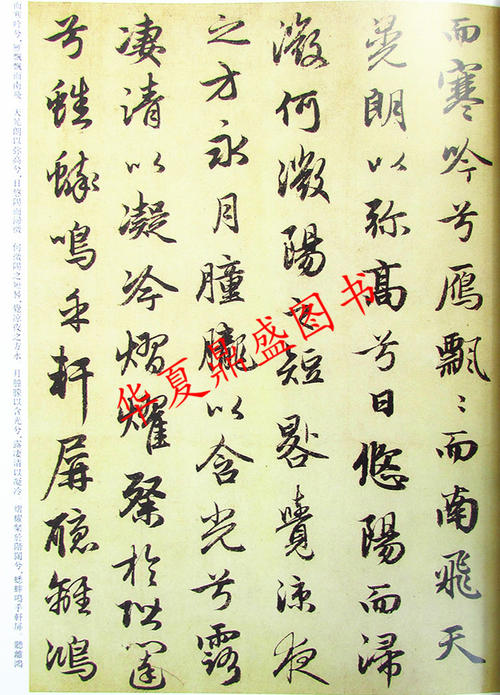 而寒吟兮鴈飄〻而南飛天
晃朗以弥高兮日悠陽而浸
微何微陽之短晷覺涼夜
之方永月朣朧以含光兮露
凄清以凝冷熠燿粲於階闥
兮蟋蟀鳴乎軒屏聽離鴻
而寒吟兮，鴈飄飄而南飛 天晃朗以弥高兮，日悠陽而浸微 何微陽之短晷，覺涼夜之方永 月朣朧以含光兮，露凄清以凝冷 熠燿粲於階闥兮，蟋蟀鳴乎軒屏 聽離鴻
华夏鼎盛图书